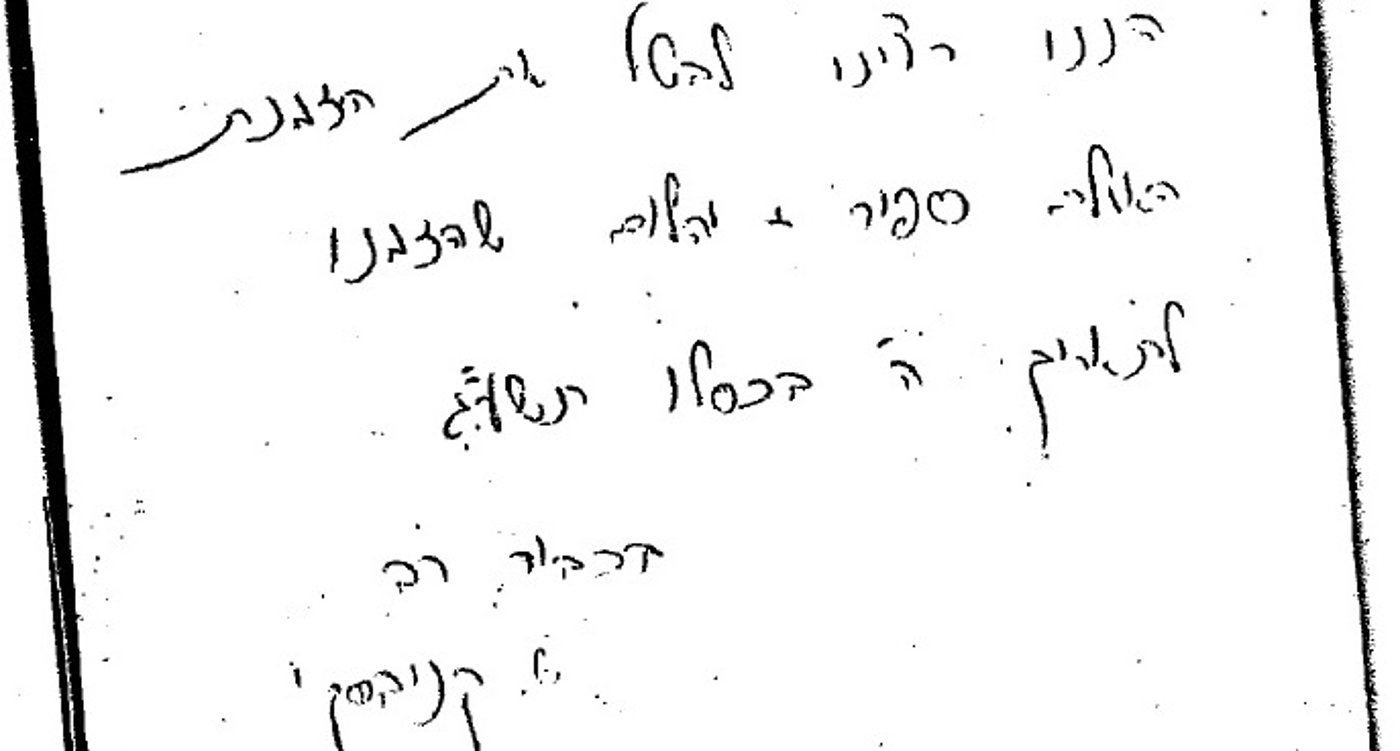 הננו רצינו לבטל את הזמנת
האולם ספיר + יהלום שהזמנו
לתאריך ה' בכסלו תשע"ג
בכבוד רב
קניבסקי